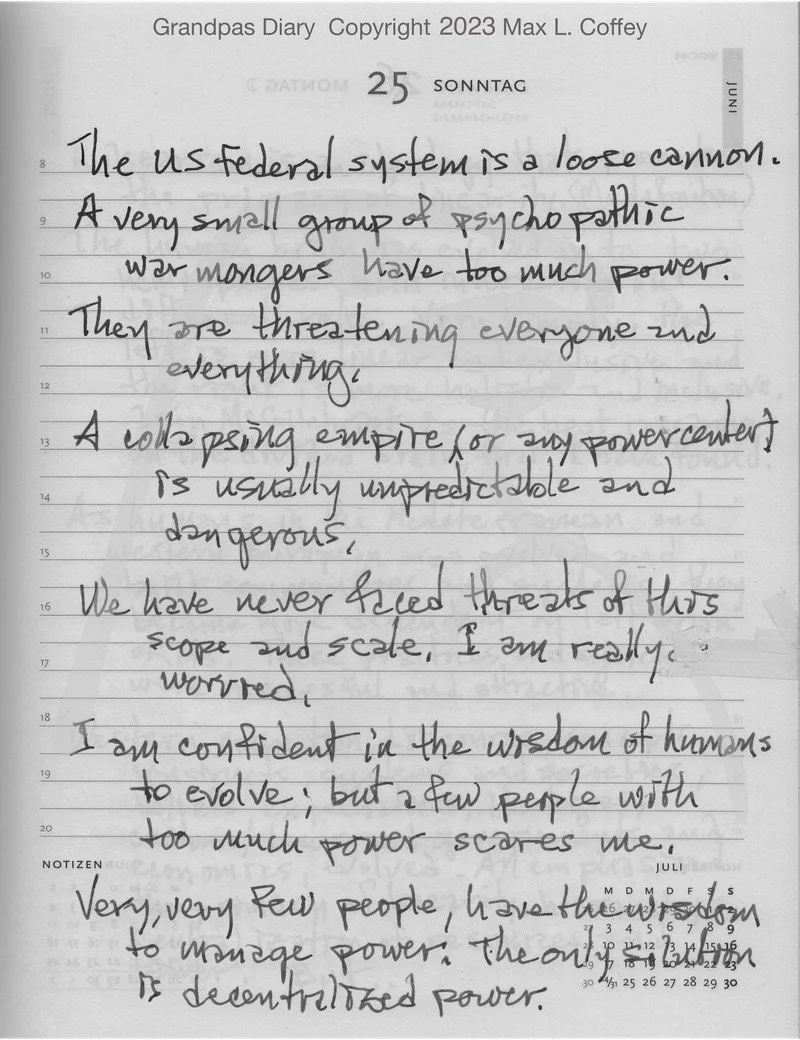 Grandpas Diary Copyright 2023 Max L. Coffey
25 SONNTAG
JUNI
8 The US Federal system is a loose cannon.
9 A very small group of psychopathic
10 war mongers have too much power.
11 They are threatening everyone and
everything.
12
13 A collapsing empire (or any power center)
14 is usually unpredictable and
dangerous.
15
16 We have never faced threats of this
scope and scale. I am really.
17 worried.
18 I am confident in the wisdom of humans
19 to evolve; but a few people with
20 too much power scares me.
NOTIZEN
JULI
M D M D F S S
Very, very few people, have the wisdom
3 4 5 6 7 8 9
to manage power: The only solution
10 11 12 13 14 15 16
17 18 19 20 21 22 23
is decentralized power.
30 24/31 25 26 27 28 29 30